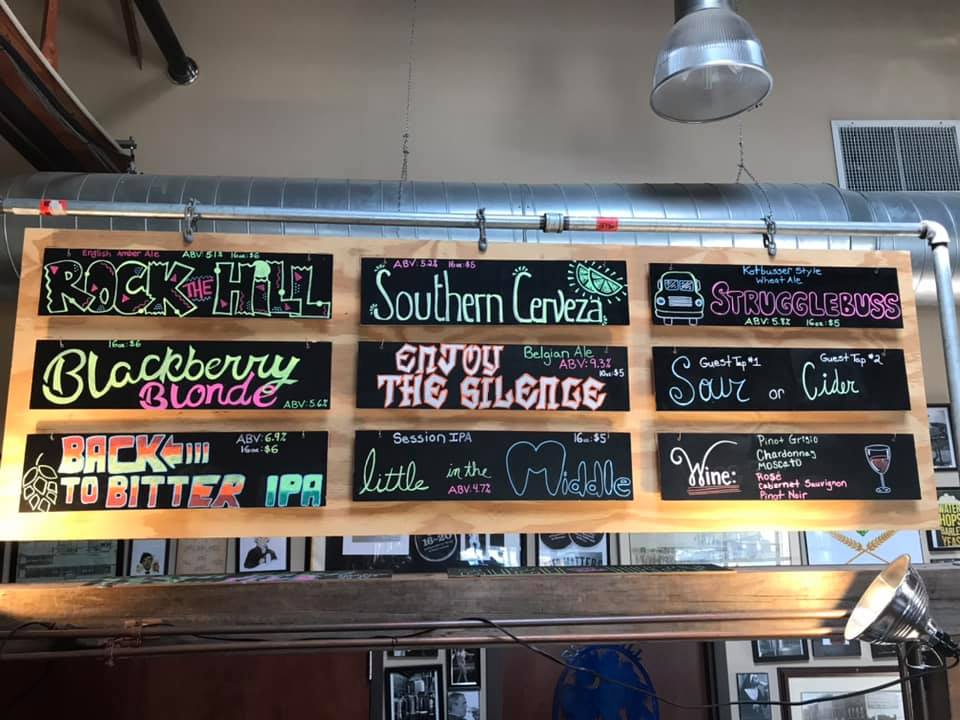 English Amber Ale ABV: 5.1% 16oz: $6
ROCK THE HILL
ABV: 5.2% 16oz: $5
Southern Cerveza
Kotbusser Style
Wheat Ale
STRUGGLEBUSS
ABV: 5.8% 16oz: $5
16oz: $6
Blackberry
Blonde
ABV: 5.6%
ENJOY
THE SILENCE
Belgian Ale
ABV: 9.3%
10oz: $5
Guest Tap #1
Sour or Cider
Guest Tap #2
BACK
TO BITTER IPA
ABV: 6.9%
16oz: $6
Session IPA 16oz: $5
little in the Middle
ABV 4.7%
Wine:
Pinot Grigio
Chardonnay
MOSCATO
Rosé
Cabernet Sauvignon
Pinot Noir
WATER
HOPS
BARLEY
YEAST